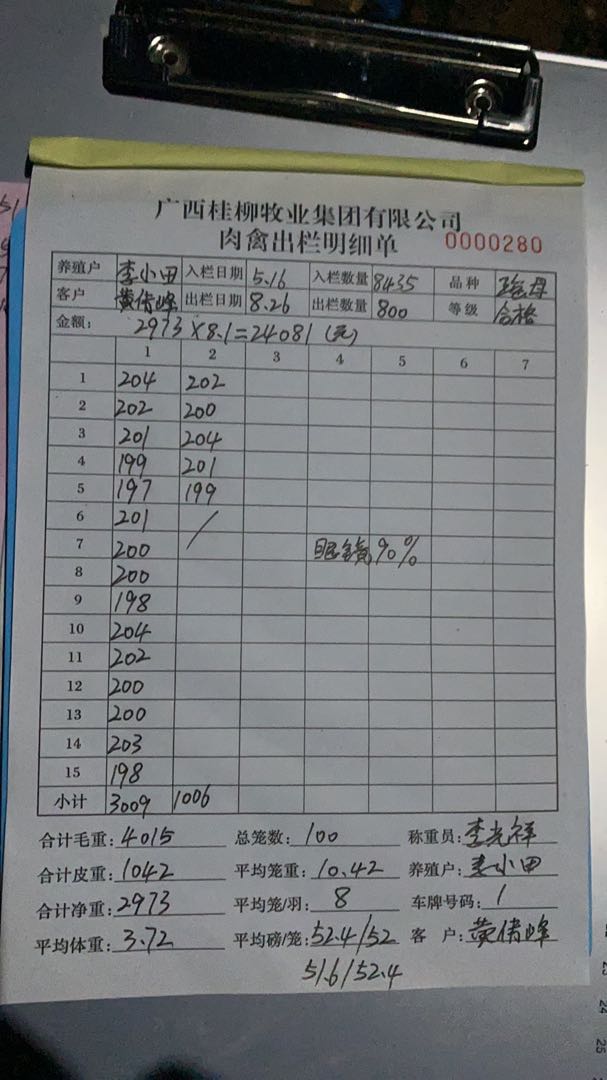 广西桂柳牧业集团有限公司
肉禽出栏明细单 0000280
养殖户 李小田 入栏日期 5.16 入栏数量 8435 品种
客户 黄倩峰 出栏日期 8.26 出栏数量 800 等级 合格
金额: 2973×8.1=24081(元)
1 2 3 4 5 6 7
1 204 202
2 202 200
3 201 204
4 199 201
5 197 199
6 201 /
7 200 眼镜90%
8 200
9 198
10 204
11 202
12 200
13 200
14 203
15 198
小计 3009 1006
合计毛重: 4015 总笼数: 100 称重员: 李光祥
合计皮重: 1042 平均笼重: 10.42 养殖户: 李小田
合计净重: 2973 平均笼/羽: 8 车牌号码: 1
平均体重: 3.72 平均磅/笼: 52.4/52 客户: 黄倩峰
51.6/52.4
23
24
25